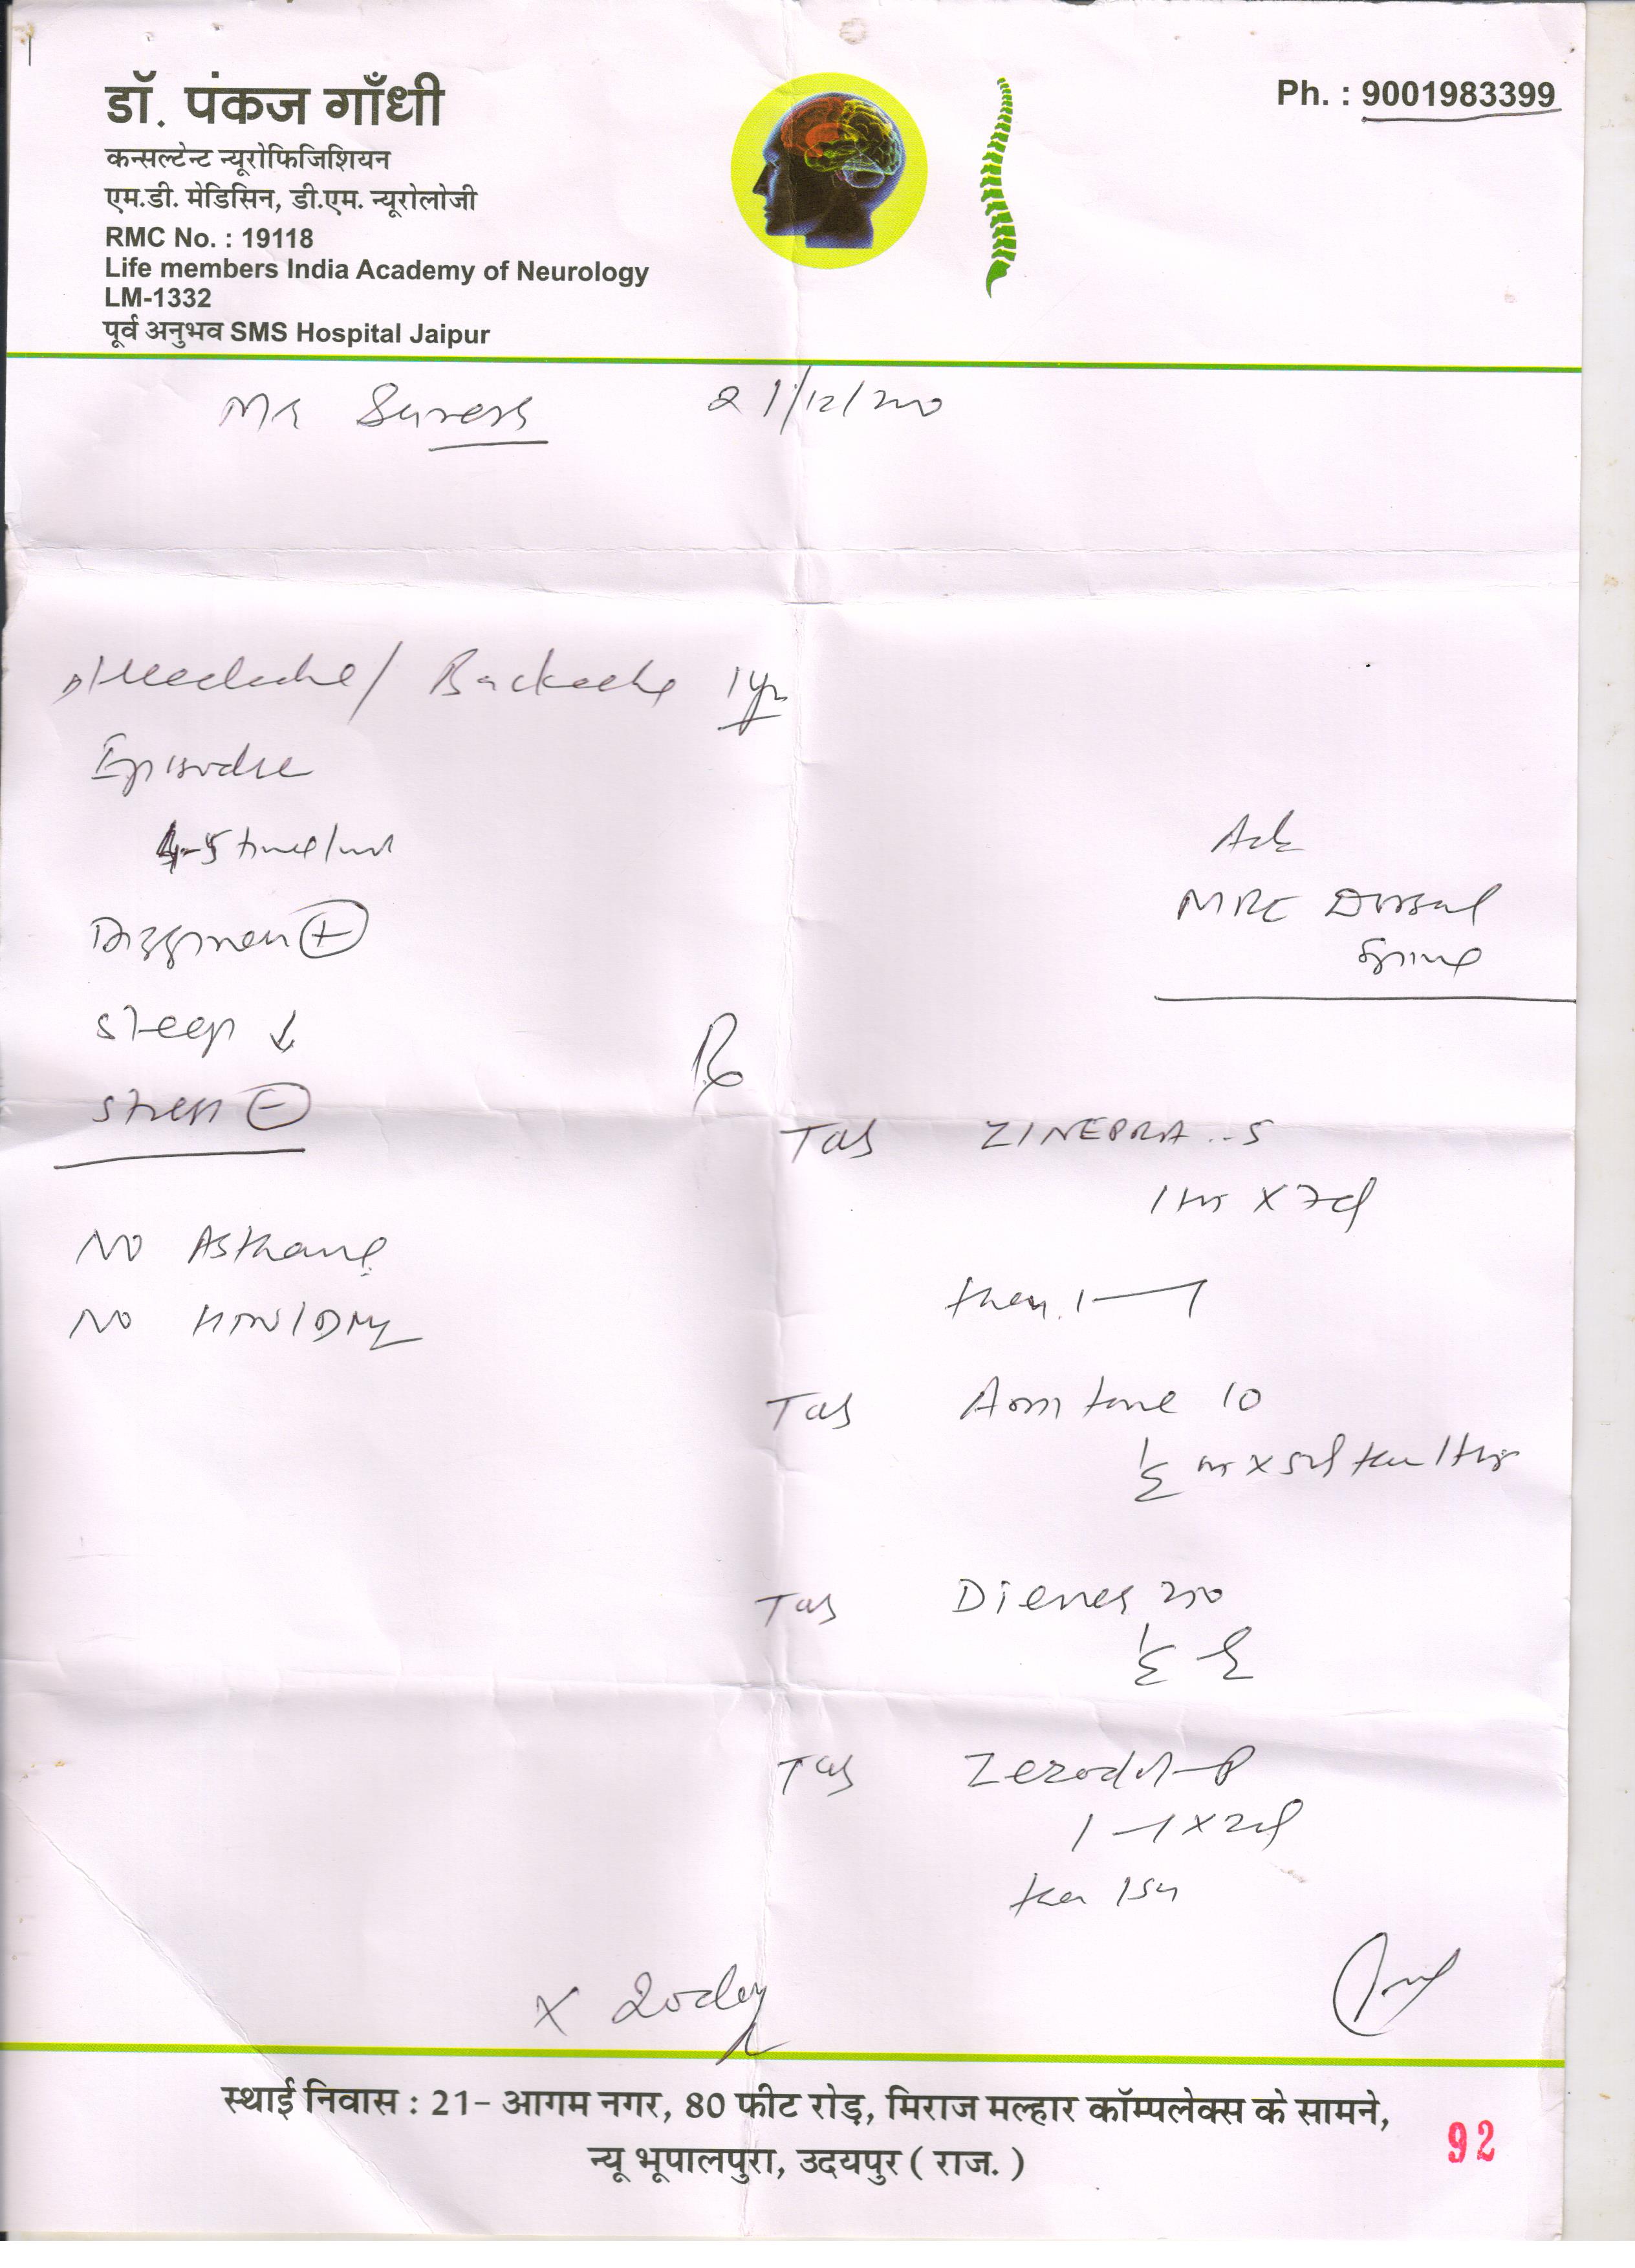 डॉ. पंकज गाँधी
कन्सल्टेन्ट न्यूरोफिजिशियन
एम.डी. मेडिसिन, डी.एम. न्यूरोलोजी
RMC No. : 19118
Life members India Academy of Neurology
LM-1332
पूर्व अनुभव SMS Hospital Jaipur
Ph. : 9001983399
Mr Suresh 21/12/200
Headache/ Backache 1yr
Episodic
4-5 time/
Dizziness +
Sleep ↓
Stress -
No Asthama
No HTN/DM
Adv
MRI Dorsal
Spine
Rx
Tab ZINEPRA -5
1 hs x 7d
then 1
Tab 10
1/2 hs x 5d then 1 hs
Tab 250
1/2
Tab Zerodol-P
1-1 x 2d
then 1
x 20day
स्थाई निवास : 21- आगम नगर, 80 फीट रोड़, मिराज मल्हार कॉम्पलेक्स के सामने,
न्यू भूपालपुरा, उदयपुर ( राज. )
92